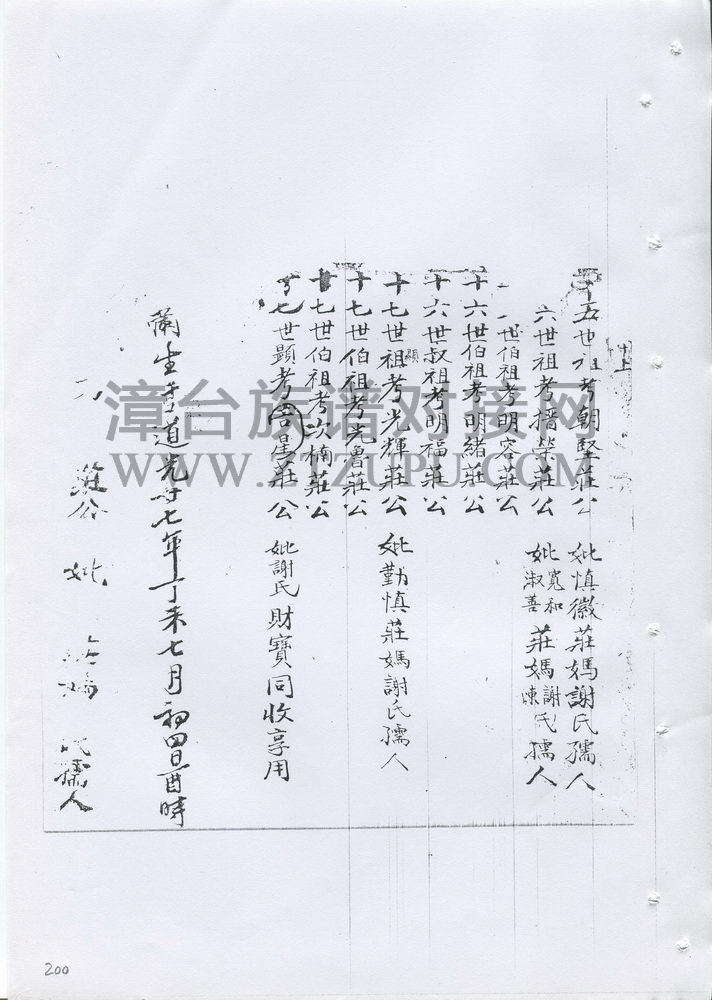 十五世祖考朝堅莊公 妣慎徽莊媽謝氏孺人
六世祖考搢榮莊公 妣寬和淑善莊媽謝陳氏孺人
世伯祖考明容莊公
十六世伯祖考明緒莊公
十六世叔祖考明福莊公
十七世顯祖考光輝莊公 妣勤慎莊媽謝氏孺人
十七世伯祖考光魯莊公
十七世伯祖考次楠莊公
十七世顯考 星莊公 妣謝氏 財寶同收享用
生于道光廿七年丁未七月初四日酉時
莊公 妣 媽 氏孺人
漳台族谱对接网
WWW.ZTZUPU.COM
200